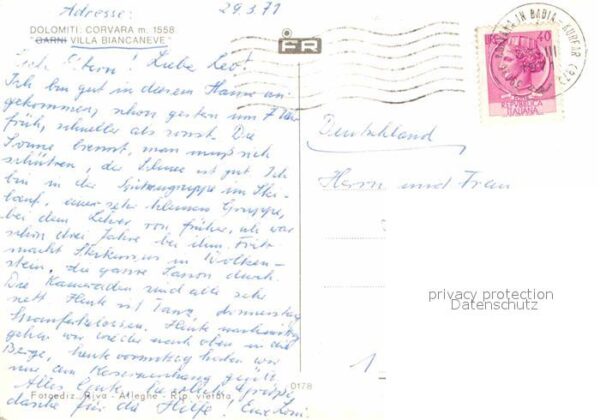 Adresse:
29.3.71
DOLOMITI: CORVARA m. 1558
"GARNI VILLA BIANCANEVE"
FR
CORVARA IN BADIA - KURFAR
40
REPUBBLICA
ITALIANA
Eltern! Liebe
Ich bin gut in diesem Hause an-
gekommen, schon gestern um 7 Uhr
früh, schneller als sonst. Die
Sonne brennt, man muß sich
schützen, der Schnee ist gut. Ich
bin in der Spitzengruppe im Ski-
lauf, einer sehr kleinen Gruppe,
bei dem Lehrer von früher, ich war
schon drei Jahre bei dem. Er
macht Skikursus in Wolken-
stein, die ganze Saison durch.
Die Kameraden sind alle sehr
nett. Heute ist Tanz, donnerstag
Heute nachmittag
gehen wir wieder nach oben in die
Berge, heute vormittag haben wir
nur den geübt.
Alles Gute, herzliche Grüße,
danke für die Hilfe! Eure
Deutschland
Herrn und Frau
privacy protection
Datenschutz
1
0178
Fotoediz. Riva - Alleghe - Rip. vietata